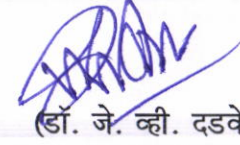 (डॉ. जे. व्ही. दडवे